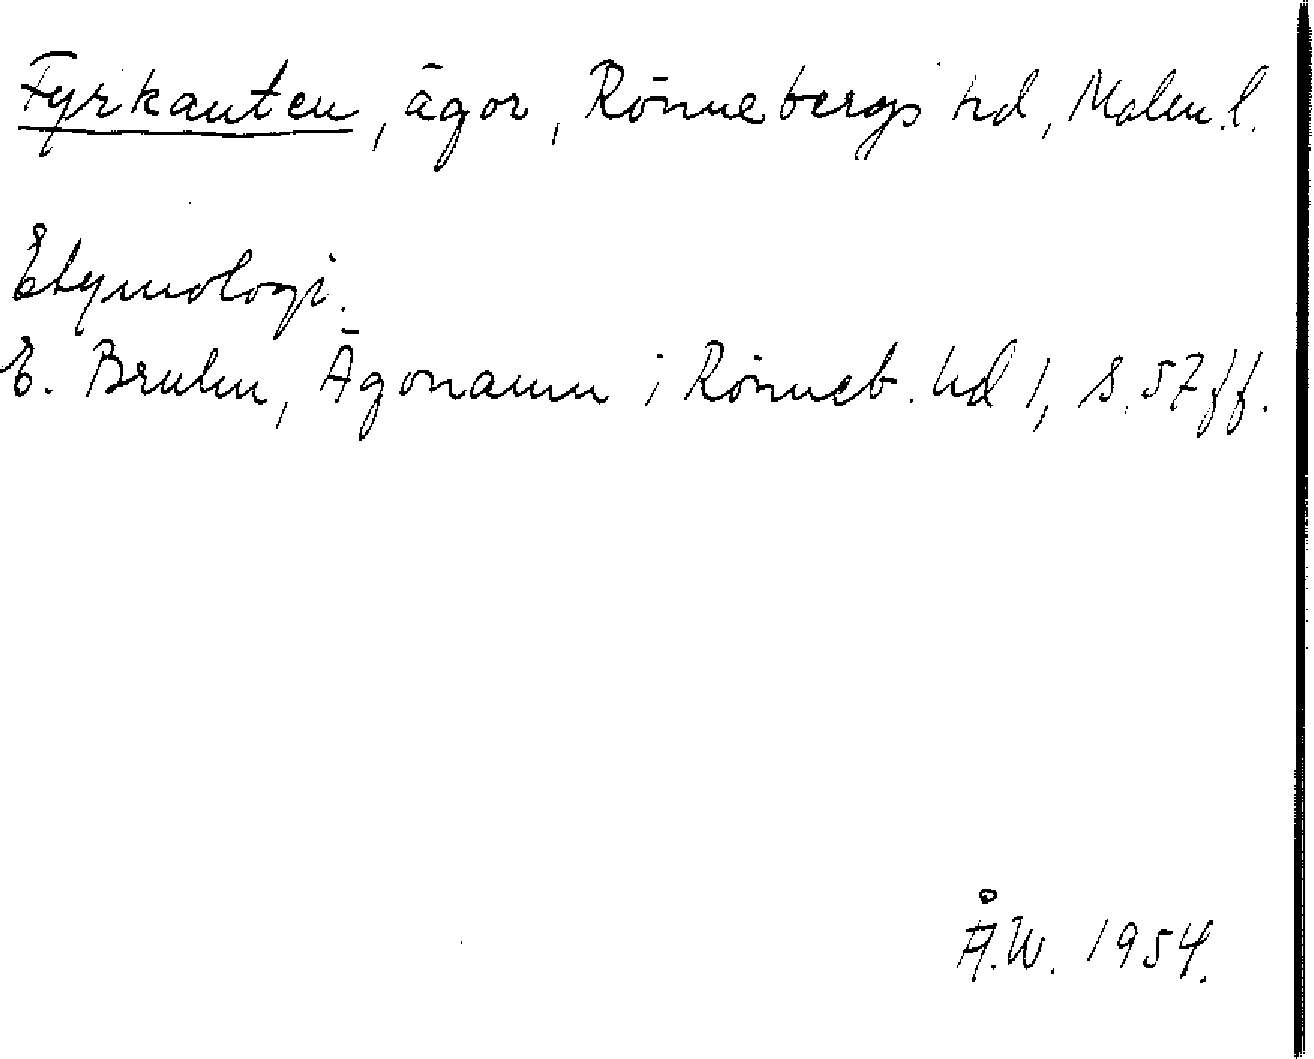 Fyrkanten, ägor, Rönnebergs hd, Malm.l.
Etymologi.
E. Bruhn, Ägonamn i Rönneb. hd 1, s. 57 ff.
Å.W. 1954.